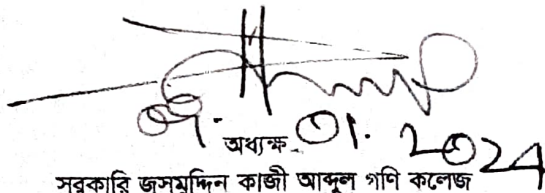 ০৭.০১.2024
অধ্যক্ষ
সরকারি জসমুদ্দিন কাজী আব্দুল গণি কলেজ